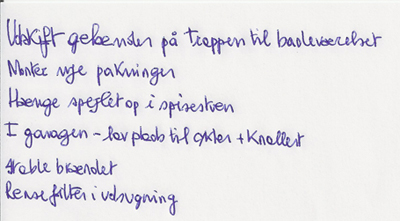 Udskift gelænder på trappen til badeværelset
Monter nye pakninger
Hænge spejlet op i spisestuen
I garagen - lav plads til cykler + Knallert
Stable brændet
Rense filter i udsugning